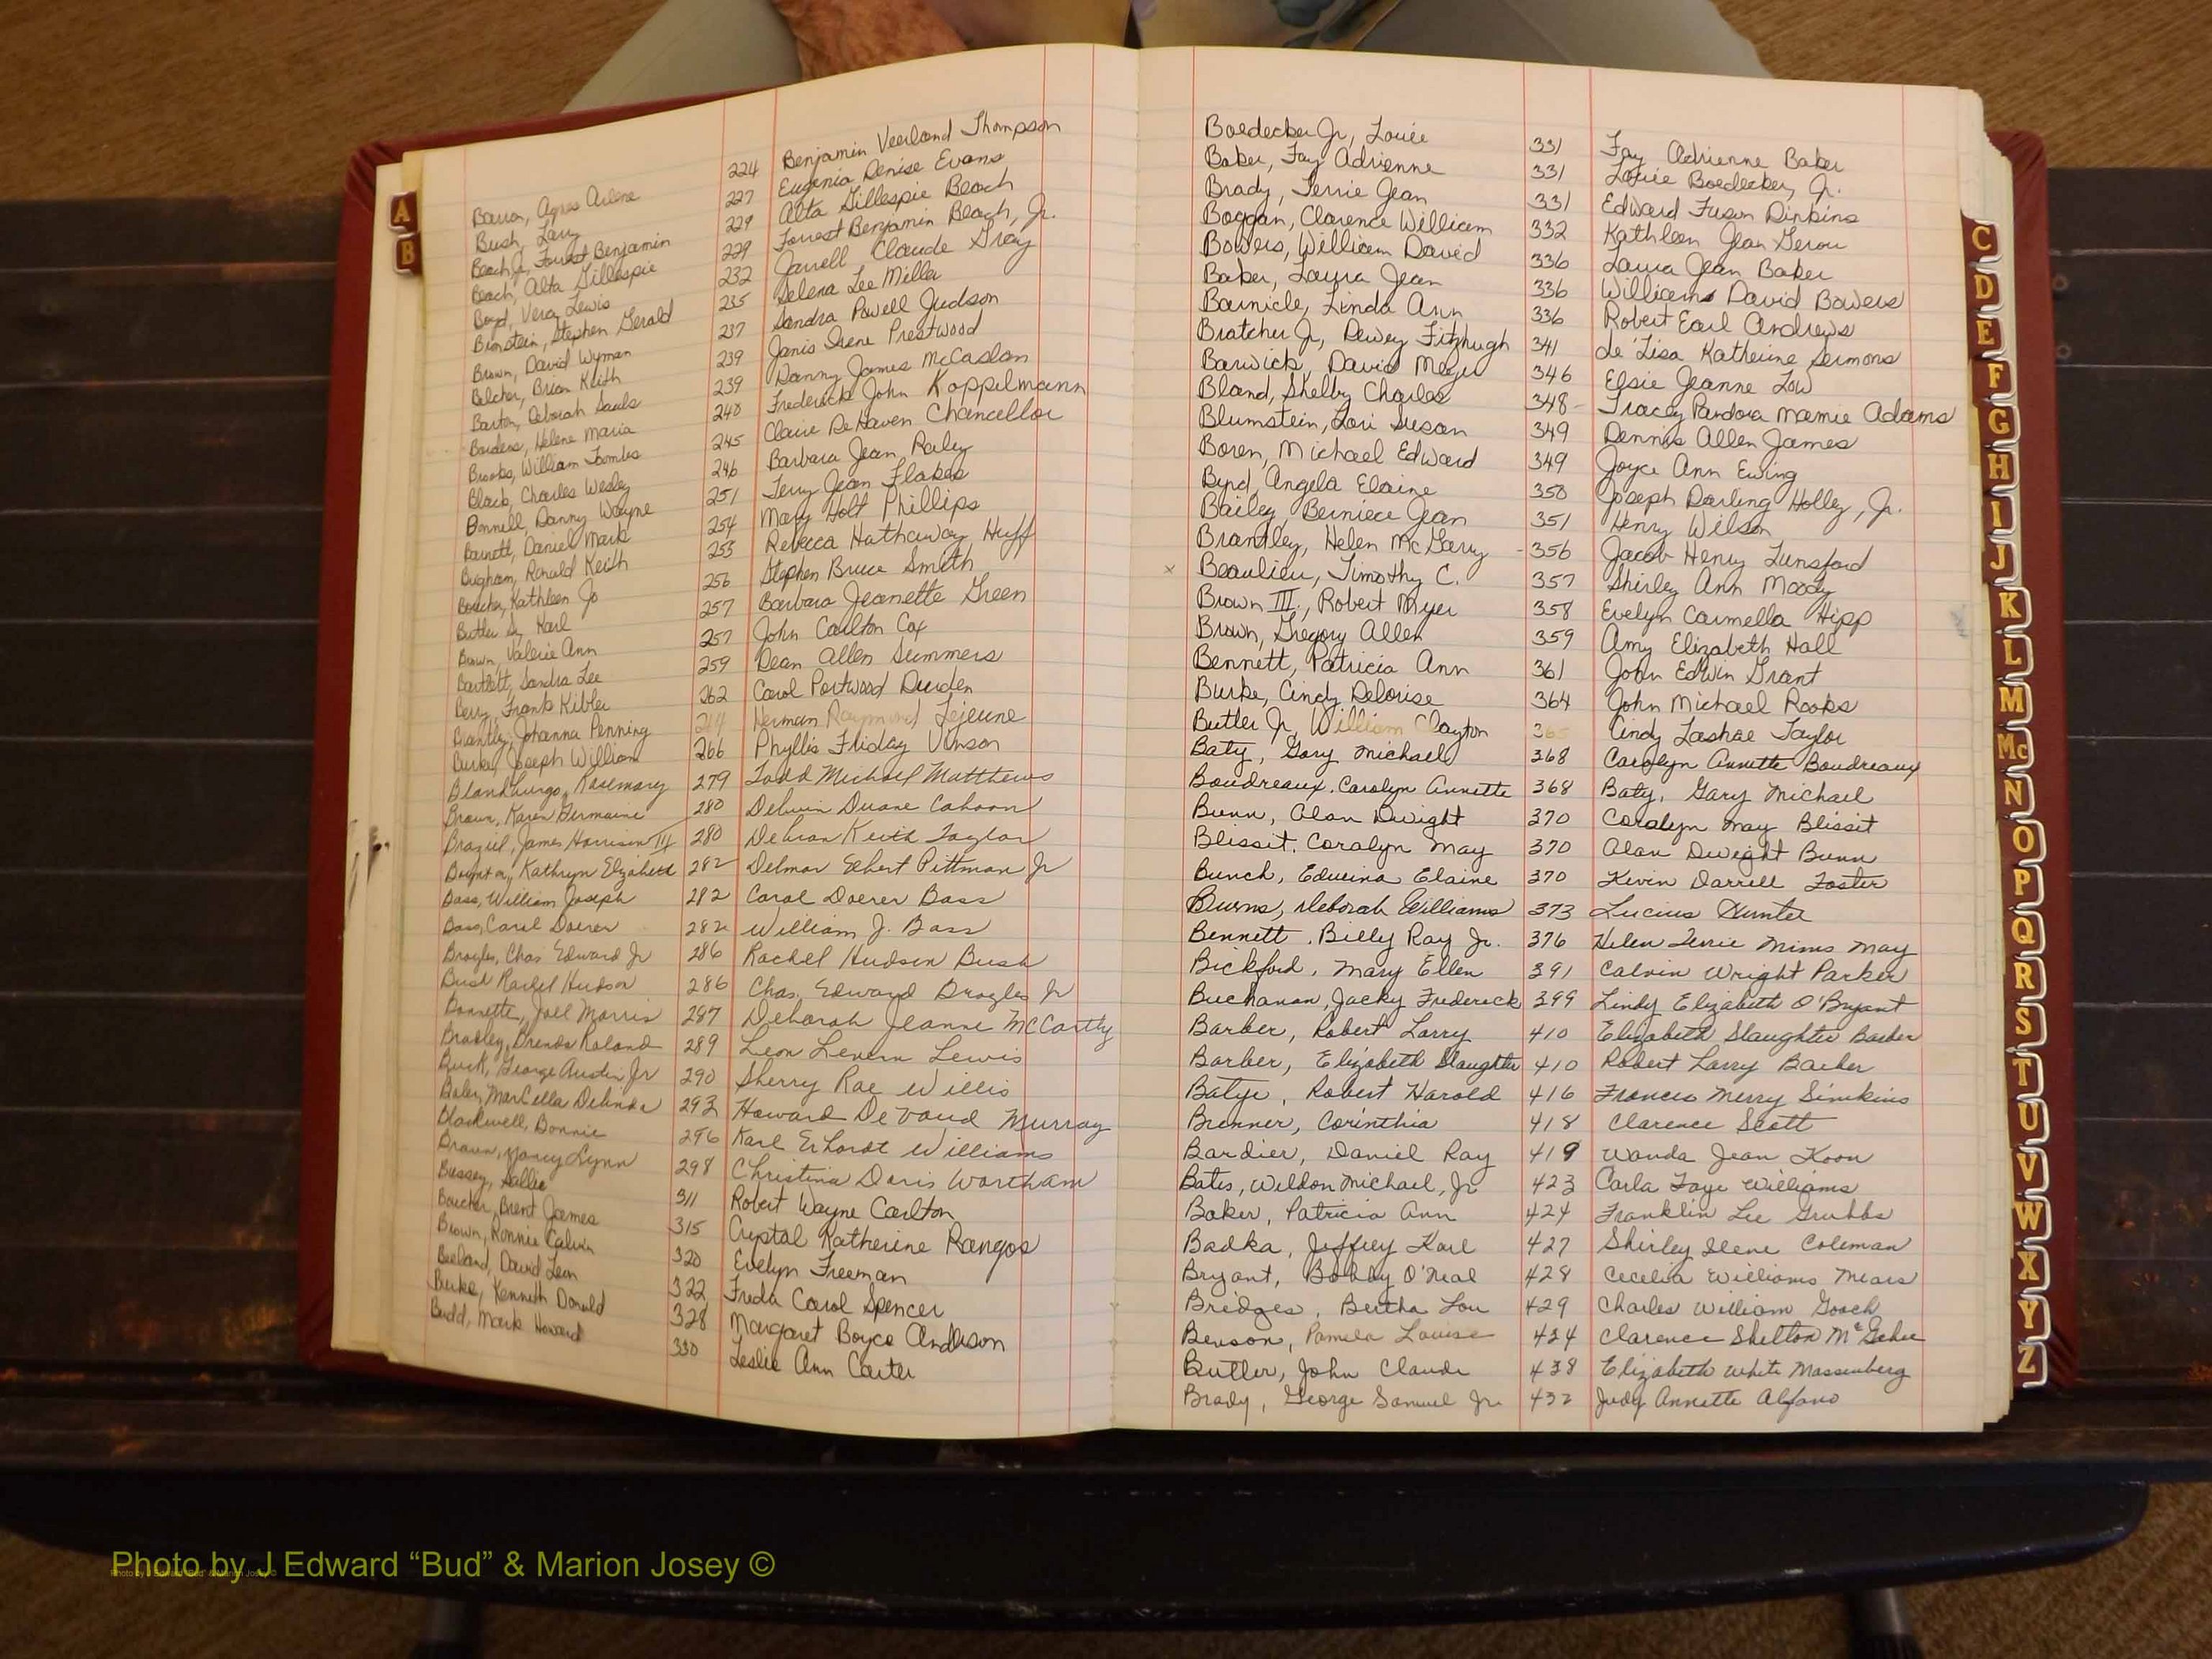 Barron, Agnes Arlene 224 Benjamin Veerland Thompson
Bush, Larry 227 Eugenia Denise Evans
Beach Jr, Forrest Benjamin 229 Alta Gillespie Beach
Beach, Alta Gillespie 229 Forrest Benjamin Beach, Jr.
Boyd, Vera Lewis 232 Jarrell Claude Gray
Bronstein, Stephen Gerald 235 Selena Lee Miller
Brown, David Wyman 237 Sandra Powell Judson
Belcher, Brian Keith 239 Janis Irene Prestwood
Barton, Deborah Sauls 239 Danny James McCaslan
Borders, Helene Maria 240 Frederick John Koppelmann
Brooks, William Toombs 245 Claire DeHaven Chancellor
Black, Charles Wesley 246 Barbara Jean Raley
Bonnell, Danny Wayne 251 Terry Jean Flakes
Barnett, Daniel Mark 254 Mary Holt Phillips
Bingham, Ronald Keith 255 Rebecca Hathaway Huff
Boucher, Kathleen Jo 256 Stephen Bruce Smith
Butler Sr, Karl 257 Barbara Jeanette Green
Brown, Valerie Ann 257 John Carlton Cox
Bartlett, Sandra Lee 259 Dean Allen Summers
Berry, Frank Kibler 262 Carol Portwood Durden
Brantley, Johanna Penning 264 Herman Raymond Lejeune
Burke, Joseph William 266 Phyllis Friday Vinson
Blandburgo, Rosemary 279 Todd Michael Matthews
Brown, Karen Germaine 280 Delwin Duane Cahoon
Braziel, James Harrison III 280 Debran Keith Taylor
Kathryn Elizabeth 282 Delmar Echert Pittman Jr
Bass, William Joseph 282 Carol Doerer Bass
Bass, Carol Doerer 282 William J. Bass
Broyles, Chas Edward Jr 286 Rachel Hudson Bush
Bush Rachel Hudson 286 Chas. Edward Broyles Jr
Bonnette, Joel Morris 287 Deborah Jeanne McCartly
Bradley, Brenda Roland 289 Leon Levern Lewis
Buck, George Austin Jr 290 Sherry Rae Willis
Baley, Marcella Delinda 293 Howard DeVaud Murray
Blackwell, Bonnie 296 Karl Erhardt Williams
Brown, Nancy Lynn 298 Christina Doris Wortham
Bussey, Sallie 311 Robert Wayne Carlton
Boucher, Brent James 315 Crystal Katherine Rangos
Brown, Ronnie Calvin 320 Evelyn Freeman
Beeland, David Leon 322 Freda Carol Spencer
Burke, Kenneth Donald 328 Margaret Boyce Anderson
Budd, Mark Howard 330 Leslie Ann Carter
Boedecker Jr, Louie 331 Fay Adrienne Baker
Baker, Fay Adrienne 331 Louie Boedecker, Jr.
Brady, Terrie Jean 331 Edward Fuson Dinkins
Boggan, Clarence William 332 Kathleen Jean Gerow
Bowers, William David 336 Laura Jean Baker
Baker, Laura Jean 336 William David Bowers
Barnicle, Linda Ann 336 Robert Earl Andrews
Bratcher Jr, Dewey Fitzhugh 341 de'Lisa Katherine Sermons
Barwick, David Meyer 346 Elsie Jeanne Low
Bland, Shelby Charles 348 Tracey Pandora Mamie Adams
Blumstein, Lori Susan 349 Dennis Allen James
Boren, Michael Edward 349 Joyce Ann Ewing
Byrd, Angela Elaine 350 Joseph Darling Holley, Jr.
Bailey, Berniece Jean 351 Henry Wilson
Brantley, Helen McGarry 356 Jacob Henry Lunsford
x Beaulieu, Timothy C. 357 Shirley Ann Moody
Brown III, Robert Myer 358 Evelyn Carmella Hipp
Brown, Gregory Allen 359 Amy Elizabeth Hall
Bennett, Patricia Ann 361 John Edwin Grant
Burke, Cindy Delorise 364 John Michael Rooks
Butler Jr, William Clayton 365 Cindy Lashae Taylor
Baty, Gary Michael 368 Carolyn Annette Boudreaux
Boudreaux, Carolyn Annette 368 Baty, Gary Michael
Bunn, Alan Dwight 370 Carolyn May Blissit
Blissit, Carolyn May 370 Alan Dwight Bunn
Bunch, Edwina Elaine 370 Kevin Darrell Foster
Burns, Deborah Williams 373 Lucius Hunter
Bennett, Billy Ray Jr. 376 Helen Terrie Mims May
Bickford, Mary Ellen 391 Calvin Wright Parker
Buchanan, Jacky Frederick 399 Lindy Elizabeth O'Bryant
Barber, Robert Larry 410 Elizabeth Slaughter Barber
Barber, Elizabeth Slaughter 410 Robert Larry Barber
Batye, Robert Harold 416 Frances Merry Simkins
Brenner, Corinthia 418 Clarence Scott
Bardier, Daniel Ray 419 Wanda Jean Koon
Bates, Weldon Michael, Jr 423 Carla Faye Williams
Baker, Patricia Ann 424 Franklin Lee Grubbs
Badka, Jeffrey Karl 427 Shirley Ilene Coleman
Bryant, Bobby O'Neal 428 Cecelia Williams Mears
Bridges, Bertha Lou 429 Charles William Gooch
Benson, Pamela Louise 434 Clarence Shelton McGehee
Butler, John Claude 438 Elizabeth White Massenberg
Brady, George Samuel Jr. 432 Judy Annette Alfano
A
B
C
D
E
F
G
H
I
J
K
L
M
Mc
N
O
P
Q
R
S
T
U
V
W
X
Y
Z
Photo by J Edward “Bud” & Marion Josey ©